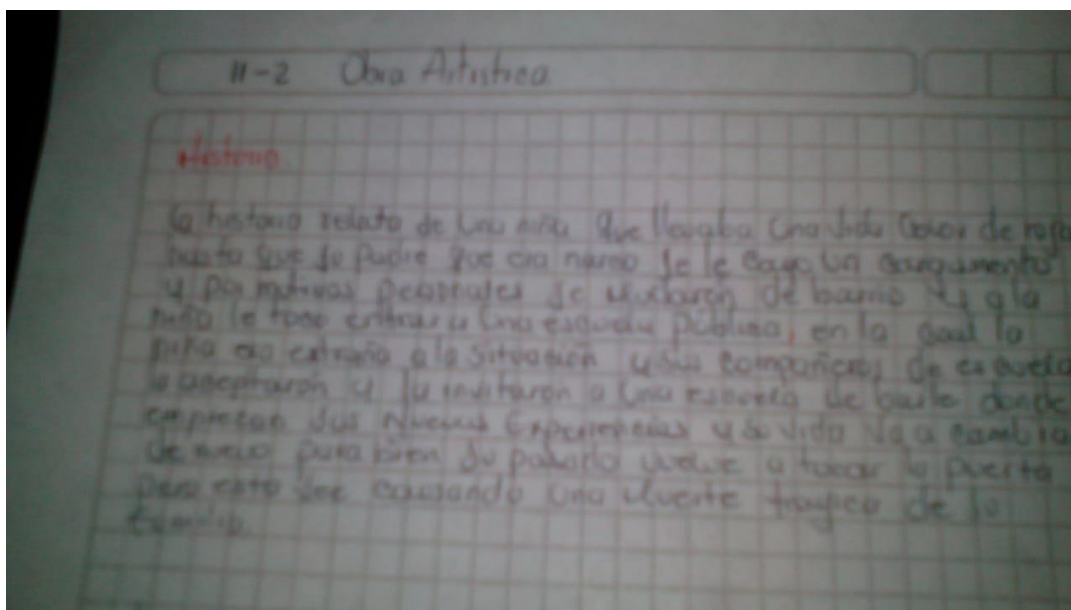 11-2 Obra Artistica
Historia
La historia relata de Una niña que llevaba Una vida Color de rosa
hasta que su Padre que era narco se le cayo Un cargamento
y por motivos personales se mudaron de barrio y a la
niña le toco entrar a Una escuela pública, en la cual la
niña era extraña a la situación y sus compañeros de escuela
la aceptaron y la invitaron a Una escuela de baile donde
empiezan sus Nuevas Experiencias y su vida va a cambiar
de nuevo para bien su pasado vuelve a tocar la puerta
pero esta vez causando Una Muerte tragica de la
familia.